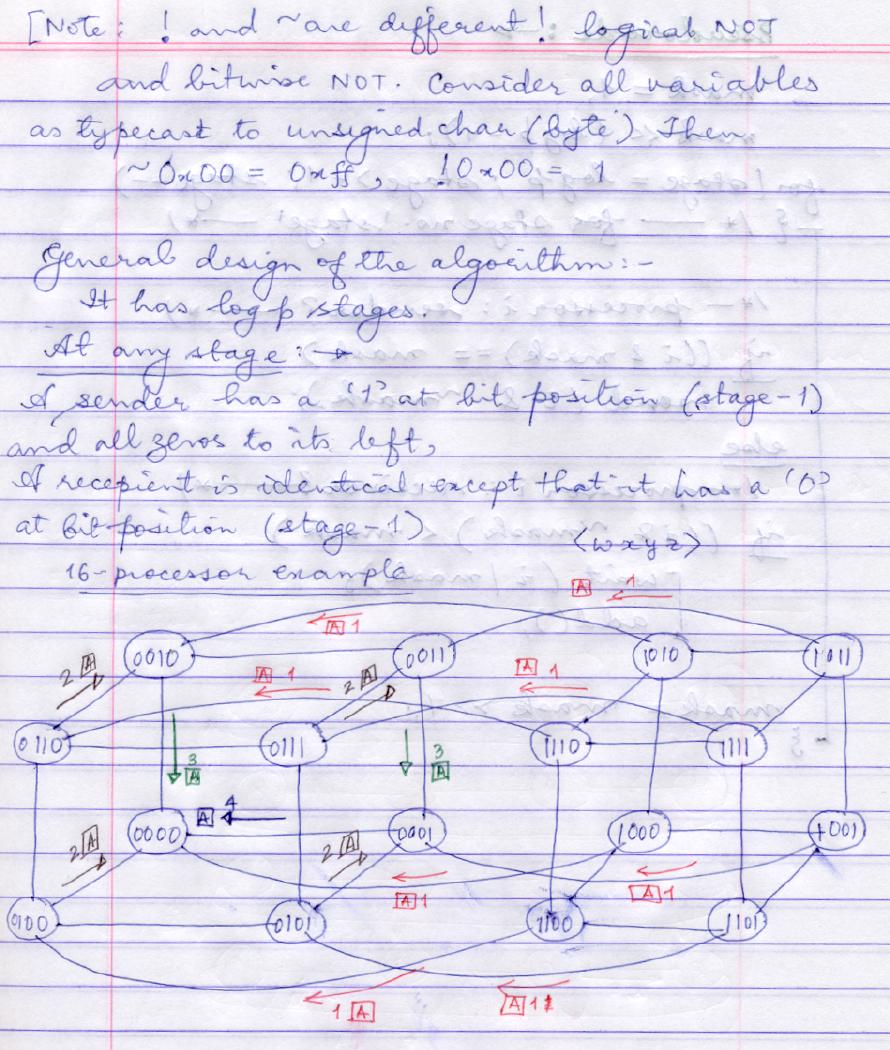 [Note: ! and ~ are different! logical NOT
and bitwise NOT. Consider all variables
as typecast to unsigned char (byte) Then
~0x00 = 0xff, !0x00 = 1
General design of the algorithm:-
It has log p stages.
At any stage:→
A sender has a '1' at bit position (stage-1)
and all zeros to its left,
A recepient is identical except that it has a '0'
at bit-position (stage-1)
<wxyz>
16-processor example
A 1
A 1
0010 0011 1010 1011
2 A A 1 2 A A 1
0110 0111 1110 1111
3 A 3 A
A 4
0000 0001 1000 1001
2 A 2 A
A 1 A 1
0100 0101 1100 1101
1 A A 1